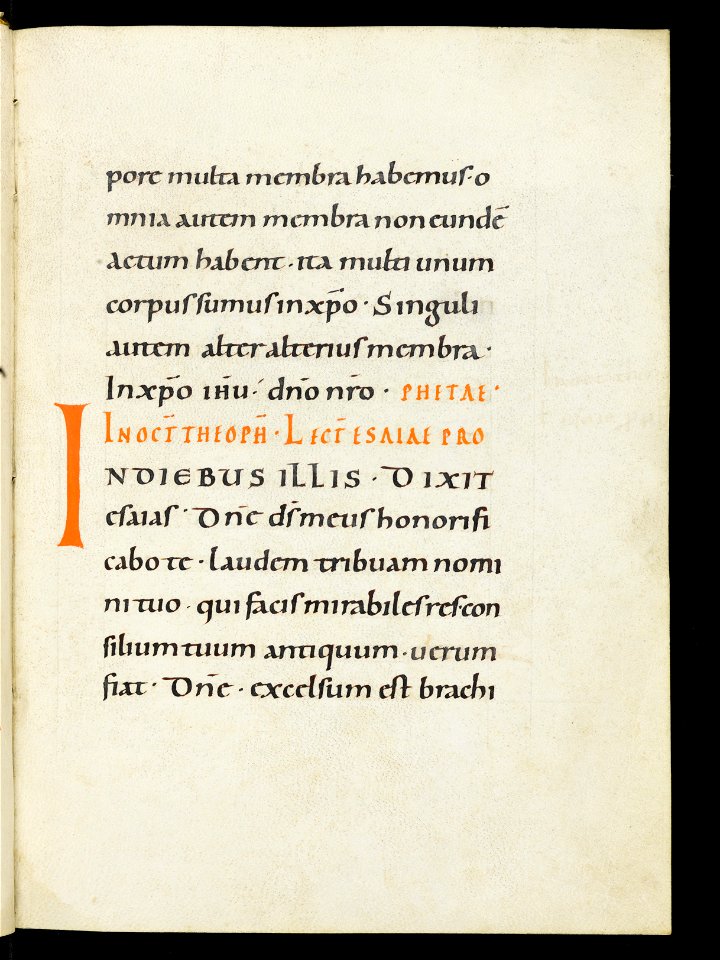 pore multa membra habemus· o
mnia autem membra non eundē
actum habent · ita multi unum
corpus sumus in xp̄o · Singuli
autem alter alterius membra ·
In xp̄o ih̄u ·́ dn̄o nr̄o · PHETAE ·
IN OCT̄ THEOPH̄ · LECT̄ ESAIAE PRO
INDIEBUS ILLIS · DIXIT
esaias · Dn̄e ds̄ meus honorifi
cabo te · laudem tribuam nomi
ni tuo · qui facis mirabiles res· con
silium tuum antiquum · uerum
fiat · Dn̄e · excelsum est brachi